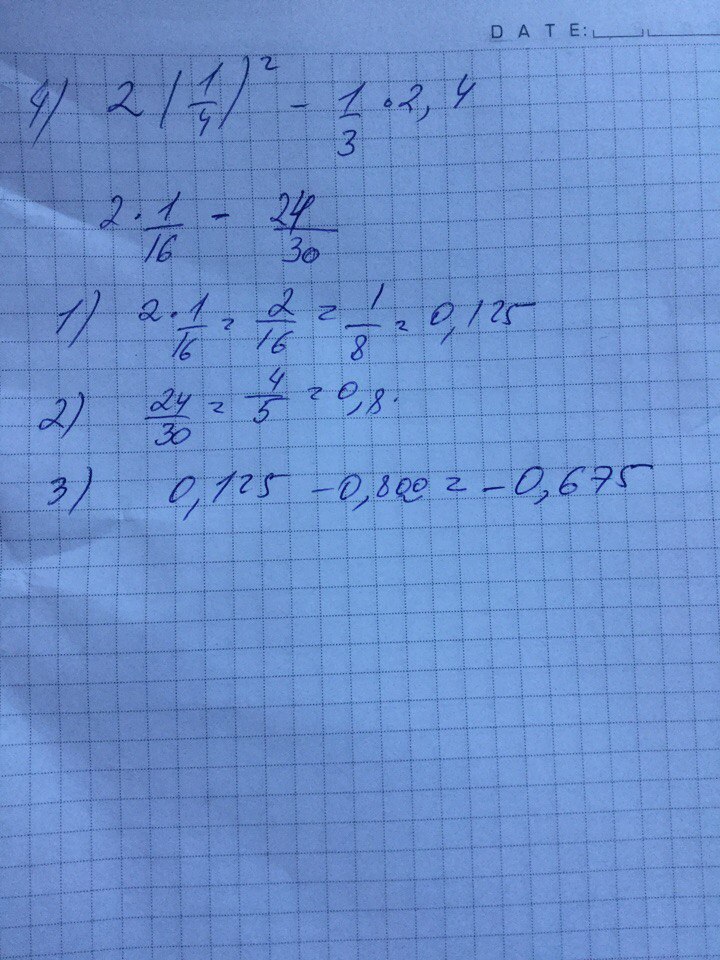 DATE:
4) 2 (1/4)² - 1/3 · 2,4
2 · 1/16 - 24/30
1) 2 · 1/16 = 2/16 = 1/8 = 0,125
2) 24/30 = 4/5 = 0,8.
3) 0,125 - 0,800 = - 0,675